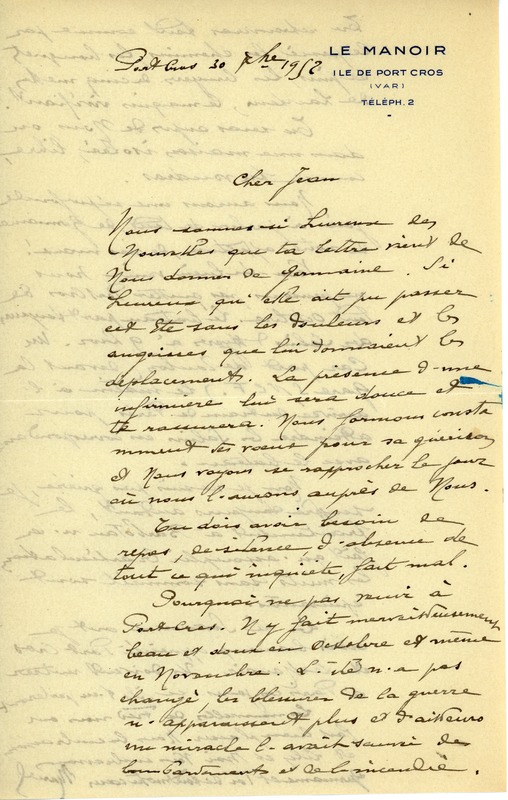 LE MANOIR
ILE DE PORT CROS
(VAR)
TÉLÉPH. 2
Port Cros 30 7bre 1952
Cher Jean
Nous sommes si heureux des
Nouvelles que ta lettre vient de
Nous donner de Germaine. Si
heureux qu'elle ait pu passer
cet Eté sans les douleurs et les
angoisses que lui donnaient les
déplacements. La présence d'une
infirmière lui sera douce et
te rassurera. Nous formons consta
mment des vœux pour sa guérison
et Nous voyons se rapprocher le jour
où nous l'aurons auprès de Nous.
Tu dois avoir besoin de
repos, de silence, d'absence de
tout ce qui inquiète, fait mal.
Pourquoi ne pas venir à
Port Cros. Il y fait merveilleusement
beau et doux en Octobre et même
en Novembre. L'île n'a pas
changé, les blessures de la guerre
n'apparaissent plus et d'ailleurs
un miracle l'avait sauvé des
bombardements et de l'incendie.